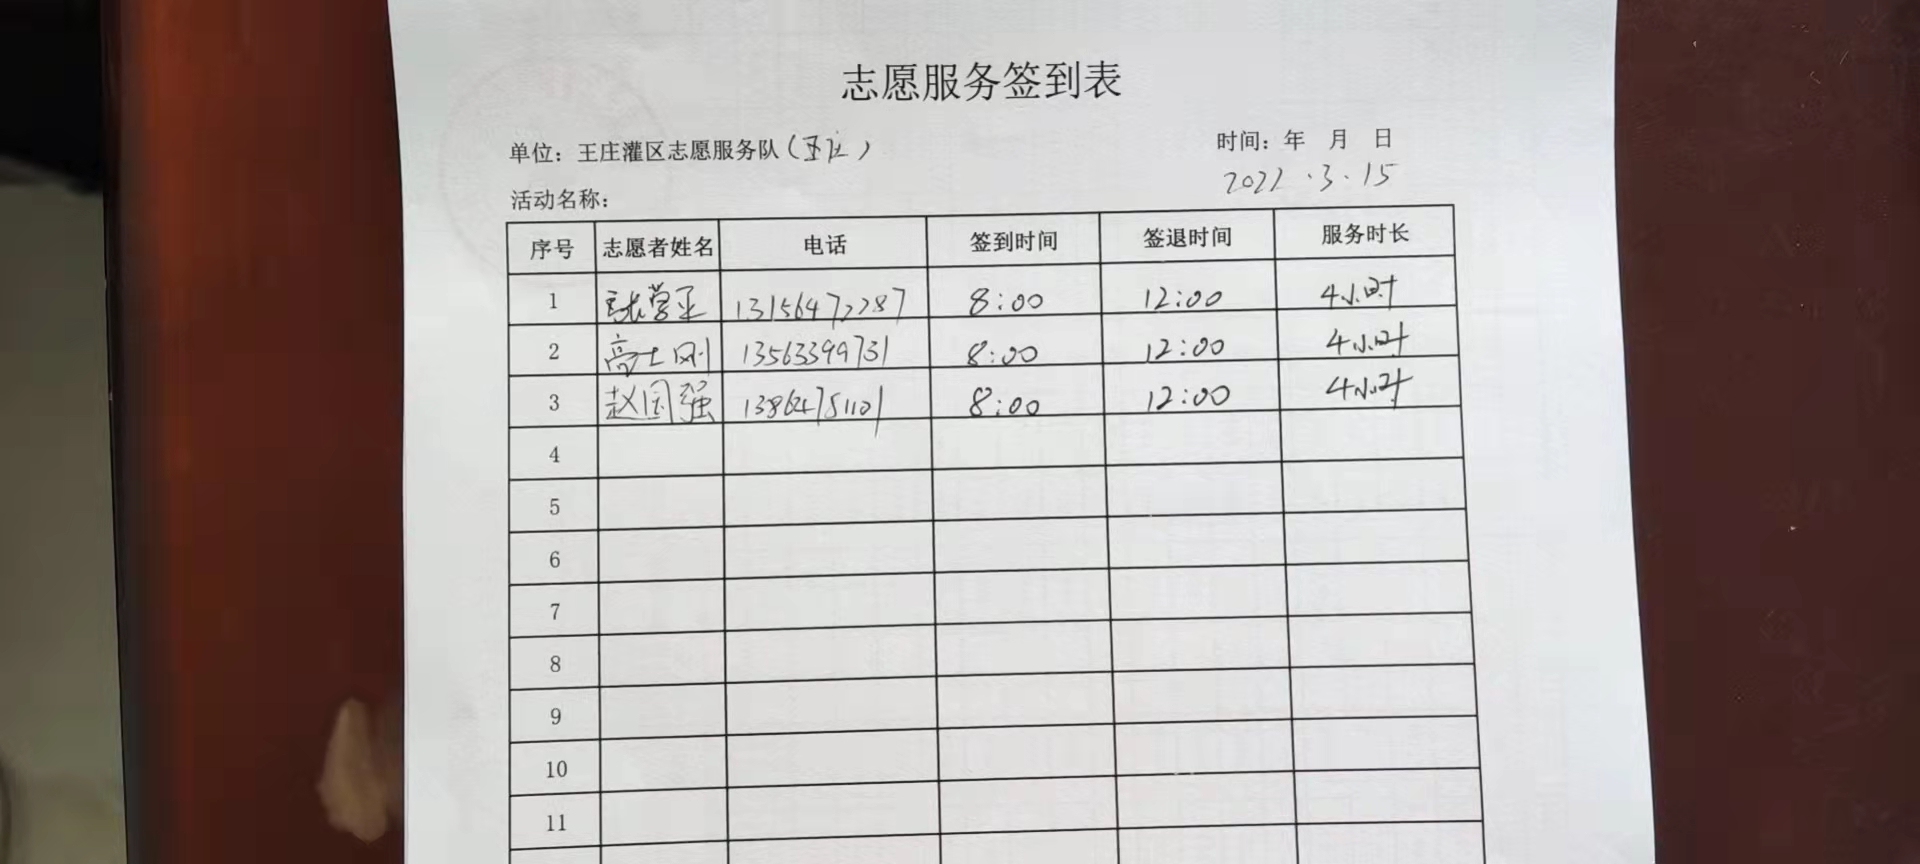 志愿服务签到表
单位：王庄灌区志愿服务队
时间：年 月 日
2022.3.15
活动名称：
序号 志愿者姓名 电话 签到时间 签退时间 服务时长
1 8:00 12:00 4小时
2 高士刚 13563399731 8:00 12:00 4小时
3 赵国强 8:00 12:00 4小时
4
5
6
7
8
9
10
11